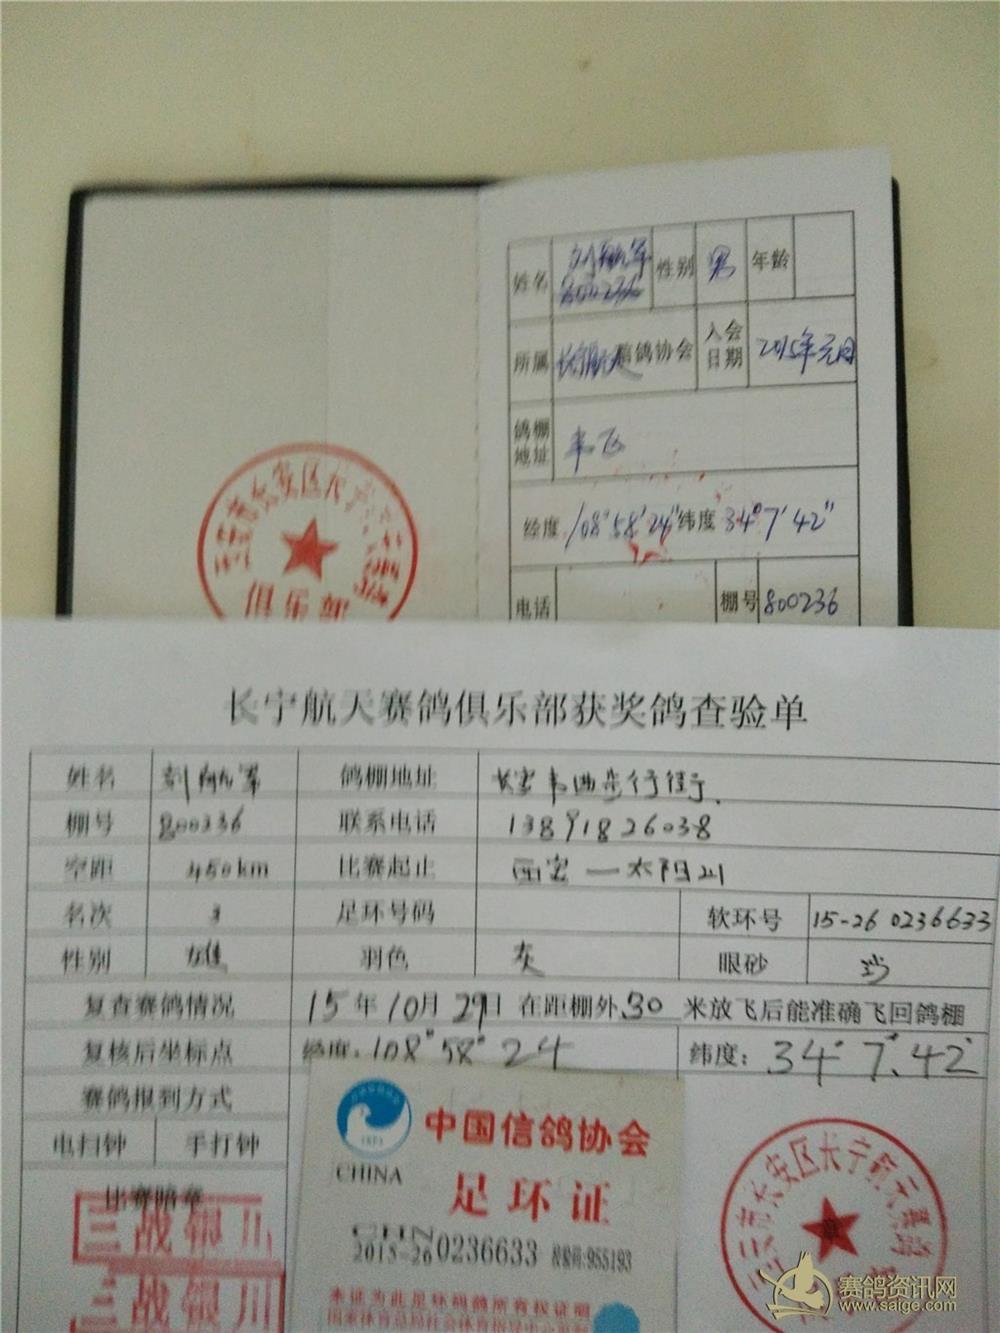 姓名 刘航军 性别 男 年龄
800236
所属 长宁航天 信鸽协会 入会日期 2015年元月
鸽棚地址 韦区
经度 108°58′24″ 纬度 34°7′42″
电话 棚号 800236
俱乐部
长宁航天赛鸽俱乐部获奖鸽查验单
姓名 刘航军 鸽棚地址 长安韦曲步行街
棚号 800236 联系电话 13891826038
空距 450km 比赛起止 西安—太阳山
名次 3 足环号码 软环号 15-26 0236633
性别 雄 羽色 灰 眼砂
复查赛鸽情况 15年10月29日在距棚外30米放飞后能准确飞回鸽棚
复核后坐标点 经度:108°58″24 纬度:34°7.42
赛鸽报到方式
电扫钟 手打钟
比赛暗章
三战银川
三战银川
中国信鸽协会
CHINA
足环证
CHN
2015-26 0236633 校验码:955193
本证为此足环码鸽所有权证明
安区长宁航天赛鸽
赛鸽资讯网
www.saige.com